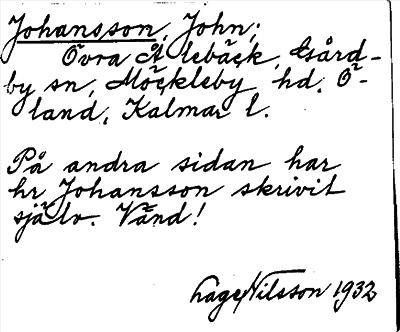 Johansson, John;
Övra Ålebäck, Gård-
by sn, Möckleby hd, Ö-
land, Kalmar l.
På andra sidan har
hr Johansson skrivit
själv. Vänd!
Lage Nilsson 1932